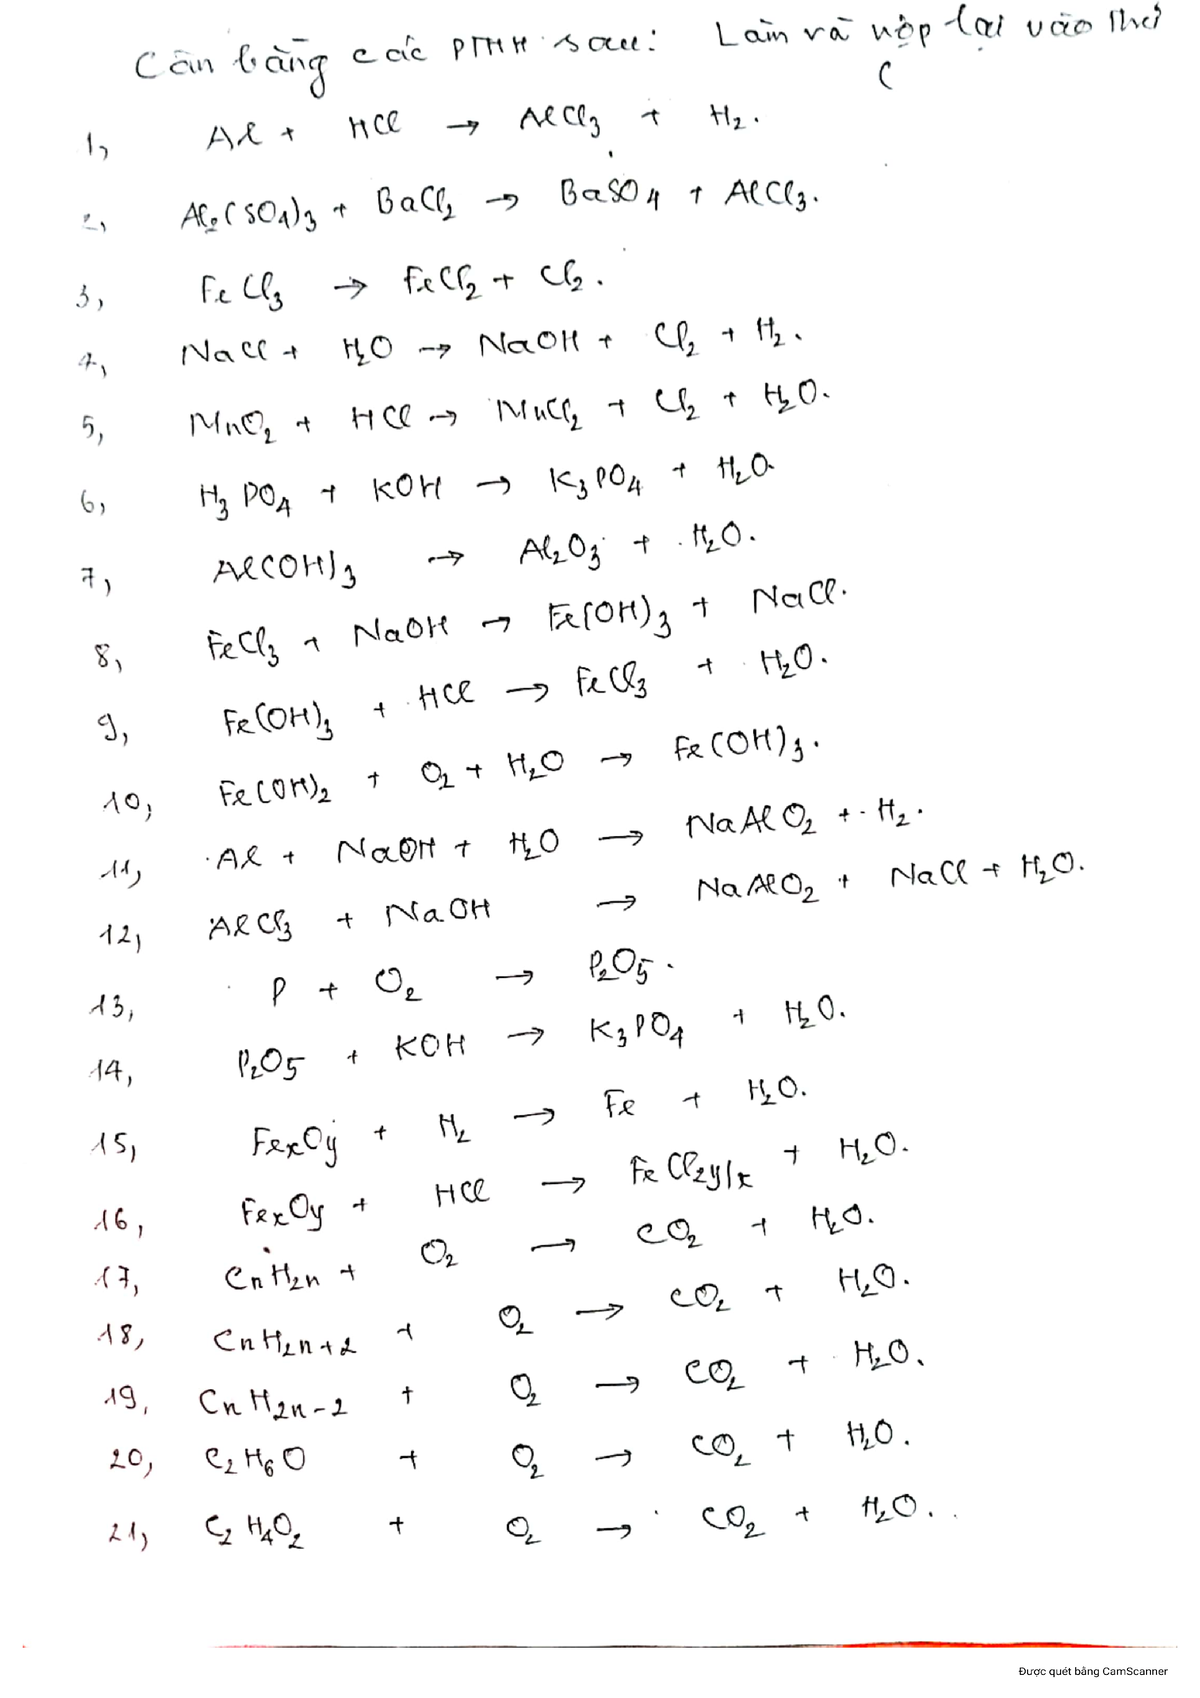 Cân bằng các PTHH sau: Làm và nộp lại vào Thứ
(
1, Al + HCl → AlCl3 + H2.
2, Al2(SO4)3 + BaCl2 → BaSO4 + AlCl3.
3, FeCl3 → FeCl2 + Cl2.
4, NaCl + H2O → NaOH + Cl2 + H2.
5, MnO2 + HCl → MnCl2 + Cl2 + H2O.
6, H3PO4 + KOH → K3PO4 + H2O.
7, Al(OH)3 → Al2O3 + H2O.
8, FeCl3 + NaOH → Fe(OH)3 + NaCl.
9, Fe(OH)3 + HCl → FeCl3 + H2O.
10, Fe(OH)2 + O2 + H2O → Fe(OH)3.
11, Al + NaOH + H2O → NaAlO2 + H2.
12, AlCl3 + NaOH → NaAlO2 + NaCl + H2O.
13, P + O2 → P2O5.
14, P2O5 + KOH → K3PO4 + H2O.
15, FexOy + H2 → Fe + H2O.
16, FexOy + HCl → FeCl2y/x + H2O.
17, CnH2n + O2 → CO2 + H2O.
18, CnH2n+2 + O2 → CO2 + H2O.
19, CnH2n-2 + O2 → CO2 + H2O.
20, C2H6O + O2 → CO2 + H2O.
21, C2H4O2 + O2 → CO2 + H2O.
Được quét bằng CamScanner